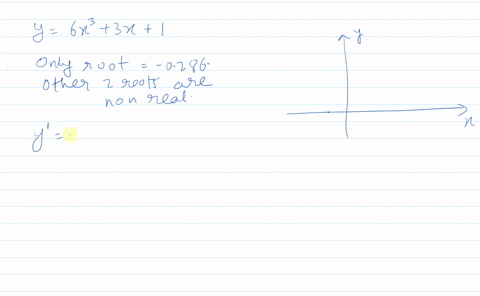 y = 6x³ + 3x + 1
Only root = -0.286.
Other 2 roots are
non real.
y' =
y
x